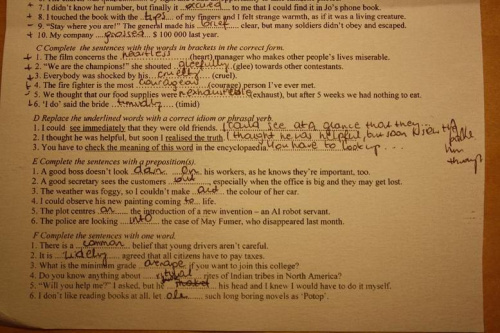 7. I didn't know her number, but finally it occured to me that I could find it in Jo's phone book.
8. I touched the book with the tips of my fingers and I felt strange warmth, as if it was a living creature.
9. "Stay where you are!" The general made his clear, but many soldiers didn't obey and escaped.
10. My company grossed $ 100 000 last year.
C Complete the sentences with the words in brackets in the correct form.
1. The film concerns the heartless (heart) manager who makes other people's lives miserable.
2. "We are the champions!" she shouted gleefully (glee) towards other contestants.
3. Everybody was shocked by his cruelty (cruel).
4. The fire fighter is the most courageous (courage) person I've ever met.
5. We thought that our food supplies were inexhaustible (exhaust), but after 5 weeks we had nothing to eat.
6. 'I do' said the bride timidly (timid)
D Replace the underlined words with a correct idiom or phrasal verb.
1. I could see immediately that they were old friends. I could see at a glance that they...
2. I thought he was helpful, but soon I realised the truth I thought he was helpful, but soon
3. You have to check the meaning of this word in the encyclopaedia. You have to look up...
E Complete the sentences with a preposition(s).
1. A good boss doesn't look down on his workers, as he knows they're important, too.
2. A good secretary sees the customers out, especially when the office is big and they may get lost.
3. The weather was foggy, so I couldn't make out the colour of her car.
4. I could observe his new painting coming to life.
5. The plot centres on the introduction of a new invention – an AI robot servant.
6. The police are looking into the case of May Fumer, who disappeared last month.
F Complete the sentences with one word.
1. There is a common belief that young drivers aren't careful.
2. It is widely agreed that all citizens have to pay taxes.
3. What is the minimum grade if you want to join this college?
4. Do you know anything about rites of Indian tribes in North America?
5. "Will you help me?" I asked, but he his head and I knew I would have to do it myself.
6. I don't like reading books at all, let such long boring novels as 'Potop'.